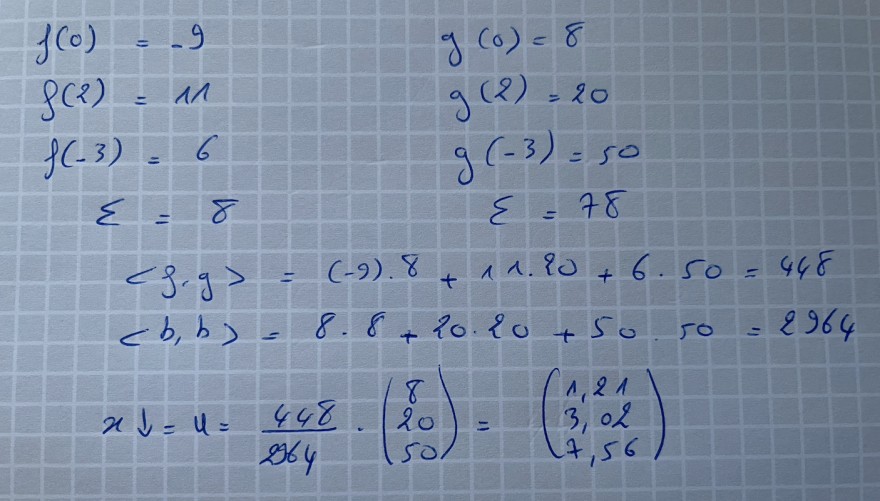 f(0) = -9 g(0) = 8
f(2) = 11 g(2) = 20
f(-3) = 6 g(-3) = 50
Σ = 8 Σ = 78
<f.g> = (-9).8 + 11.20 + 6.50 = 448
<b,b> = 8.8 + 20.20 + 50.50 = 2964
x↓ = u = 448/2964 . (8 20 50) = (1,21 3,02 7,56)